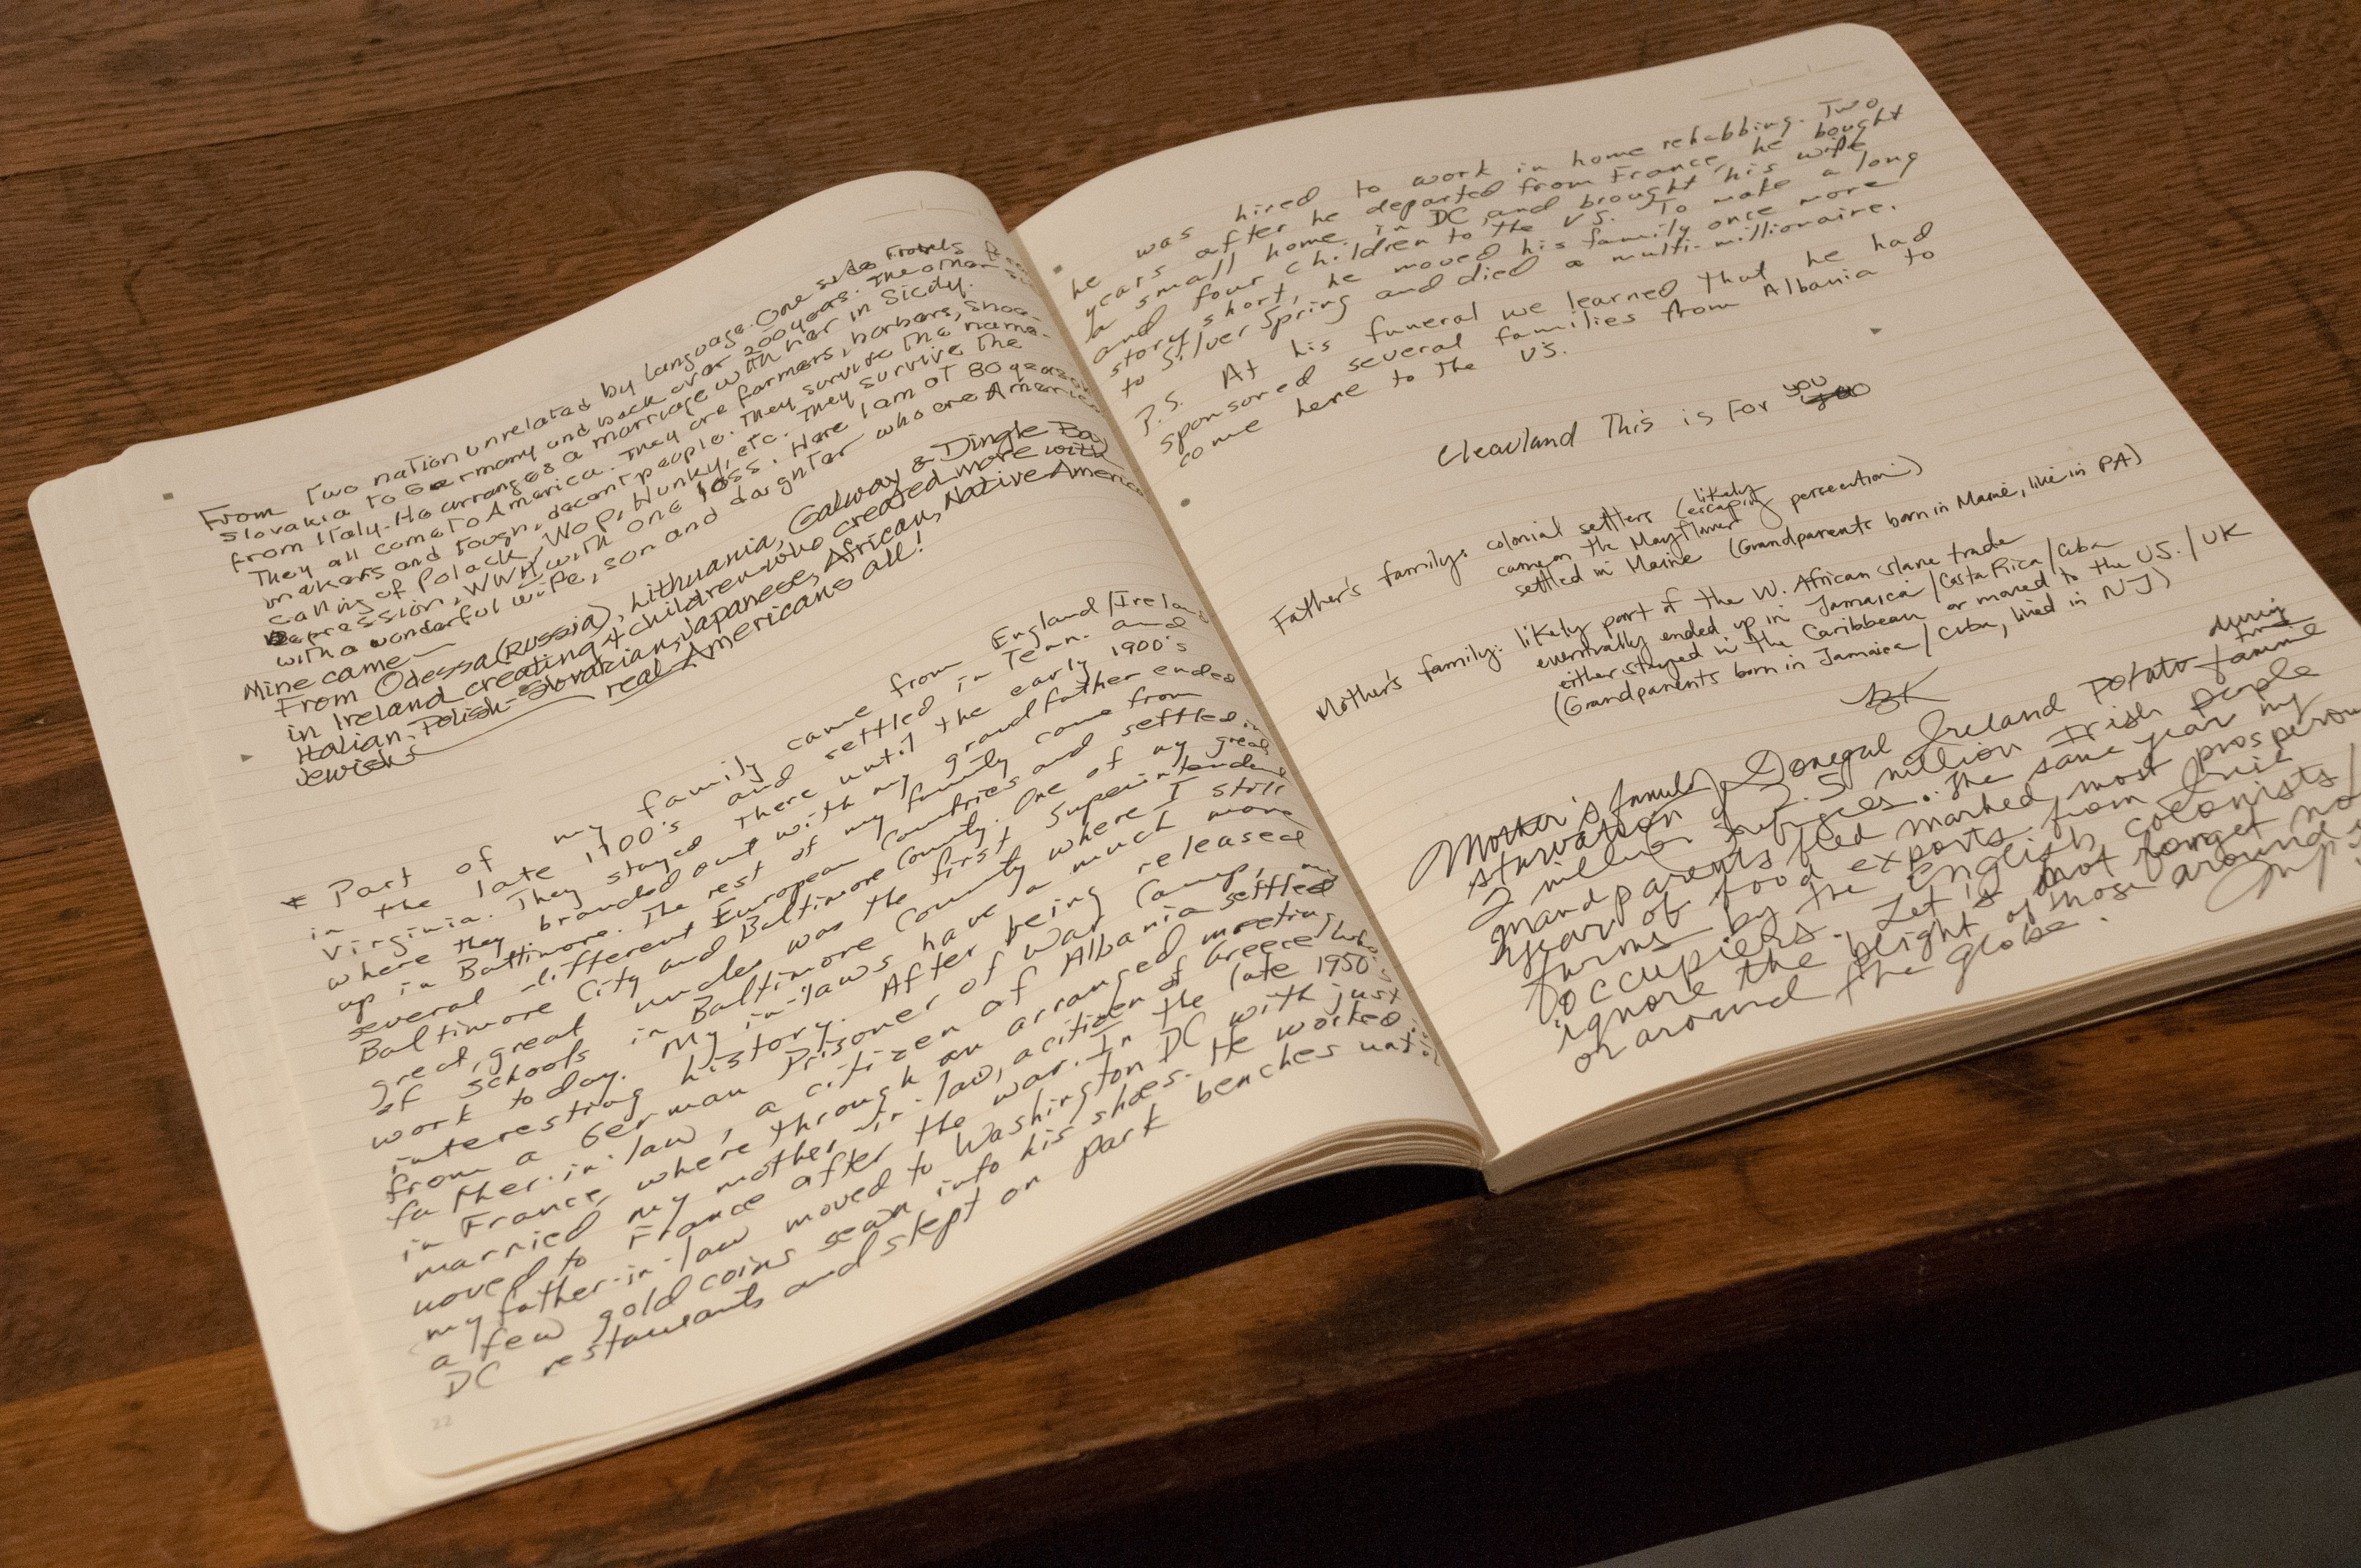 From Two nation unrelated by language. One side travels from
Slovakia to Germany and back over 200 years. The other
from Italy. He arranges a marriage with her in Sicily.
They all come to America. They are farmers, barbers, shoe-
makers and tough, decent people. They survive the name-
calling of Polack, Wop, Hunky, etc. They survive the
Depression, WWII, with one loss. Here I am at 80 years
with a wonderful wife, son and daughter who are American
Mine came—
From Odessa (Russia), Lithuania, Galway & Dingle Bay
in Ireland creating 4 children who created more with
Italian, Polish-Slovakian, Japanese, African, Native America
Jewish real Americans all!
* Part of my family came from England/Ireland
in the late 1700's and settled in Tenn. and
Virginia. They stayed there until the early 1900's
where they branded out with my grandfather ended
up in Baltimore. The rest of my family come from
several different European countries and settled in
Baltimore City and Baltimore County. One of my great
great, great uncles was the first Superintendent
of schools in Baltimore County where I still
work today. My in-laws have a much more
interesting history. After being released
from a German Prisoner of War Camp, my
father-in-law, a citizen of Albania settled
in France, where through an arranged meeting
married my mother-in-law, a citizen of Greece who
moved to France after the war. In the late 1950's
my father-in-law moved to Washington DC with just
a few gold coins sewn into his shoes. He worked in
DC restaurants and slept on park benches until
22
he was hired to work in home rehabbing. Two
years after he departed from France, he bought
a small home in DC and brought his wife
and four children to the US. To make a long
story short, he moved his family once more
to Silver Spring and died a multi-millionaire.
P.S. At his funeral we learned that he had
sponsored several families from Albania to
come here to the US.
Cleavland This is For you
Father's family: colonial settlers (likely escaping persecution)
came on the Mayflower
settled in Maine (Grandparents born in Maine, live in PA)
Mother's family: likely part of the W. African slave trade
eventually ended up in Jamaica/Costa Rica/Cuba
either stayed in the Caribbean or moved to the U.S./UK
(Grandparents born in Jamaica/Cuba, lived in NJ)
BK
Mother's family Donegal Ireland potato famine during
starvation of 2.5 million Irish people
2 million refugees. The same year my
grandparents fled marked most prosperou
year of food exports from Irie
farms by the English colonists/
occupiers. Let us not forget no
ignore the plight of those around us
or around the globe.